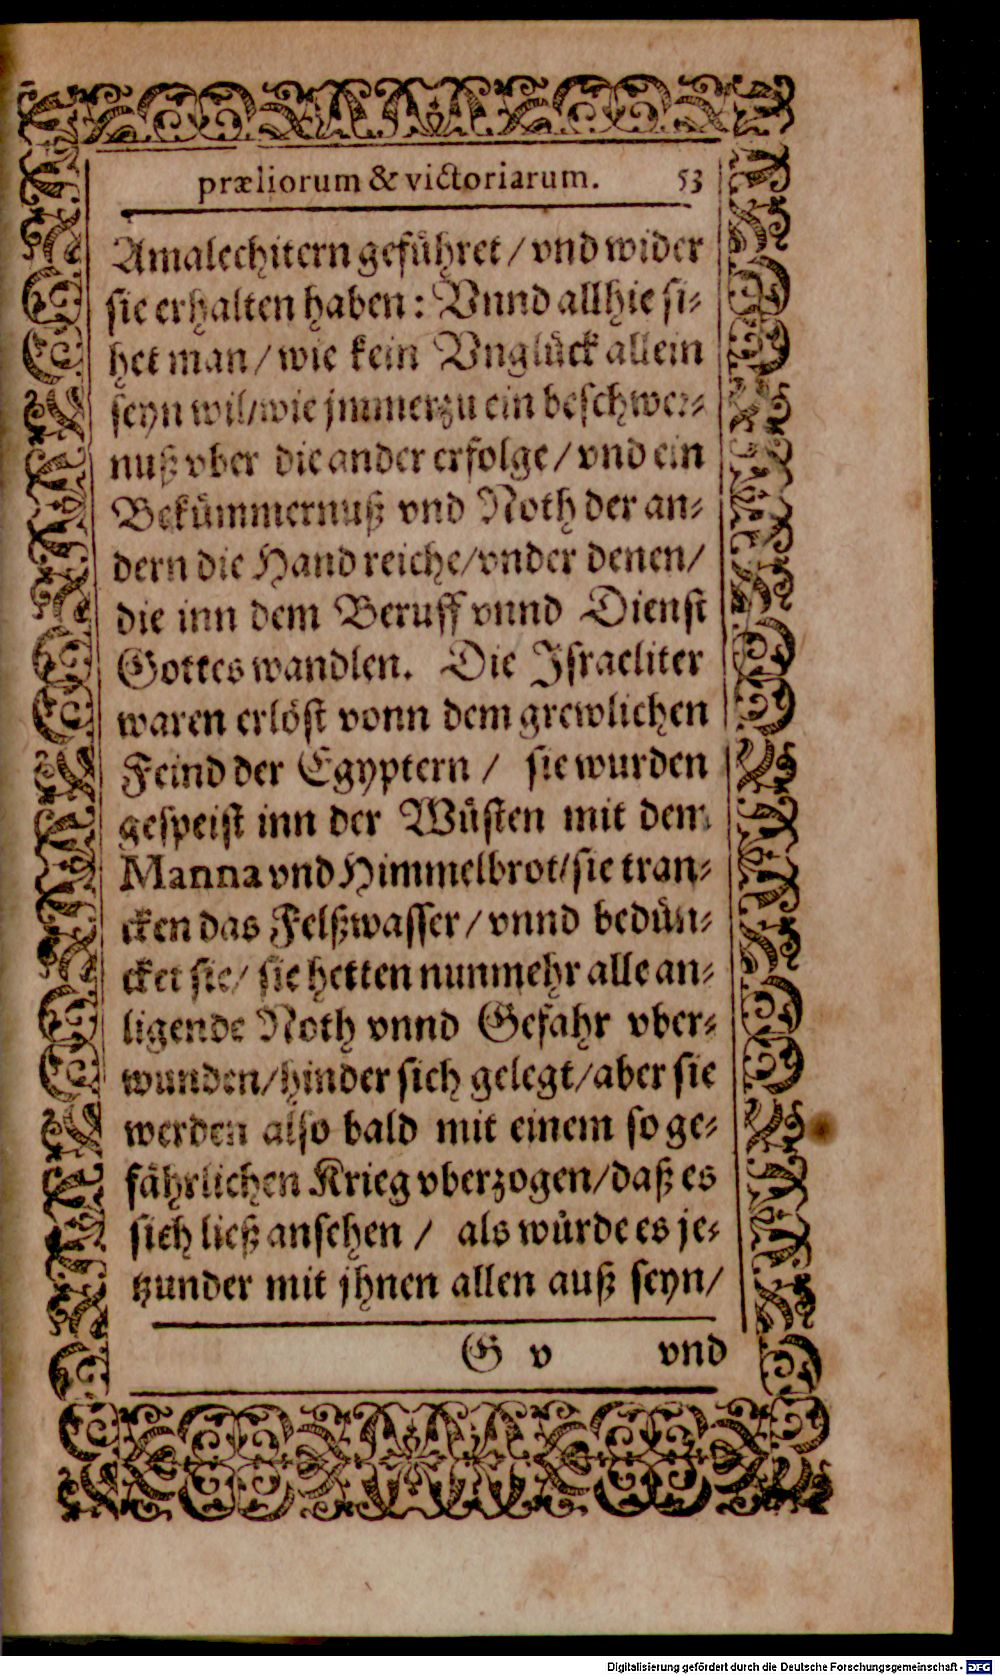 præliorum & victoriarum. 53
Amalechitern gefuͤhret / vnd wider
sie erhalten haben: Vnnd allhie si-
het man / wie kein Vngluͤck allein
seyn wil/wie jmmerzu ein beschwer-
nuß vber die ander erfolge / vnd ein
Bekuͤmmernuß vnd Noth der an-
dern die Hand reiche/vnder denen/
die inn dem Beruff vnnd Dienst
Gottes wandlen. Die Israeliter
waren erloͤst vonn dem grewlichen
Feind der Egyptern / sie wurden
gespeist inn der Wuͤsten mit dem
Manna vnd Himmelbrot/sie tran-
cken das Felßwasser / vnnd beduͤn-
cket sie / sie hetten nunmehr alle an-
ligende Noth vnnd Gefahr vber-
wunden/hinder sich gelegt/aber sie
werden also bald mit einem so ge-
faͤhrlichen Krieg vberzogen/daß es
sich ließ ansehen / als wuͤrde es je-
tzunder mit jhnen allen auß seyn/
G v vnd
Digitalisierung gefördert durch die Deutsche Forschungsgemeinschaft - DFG